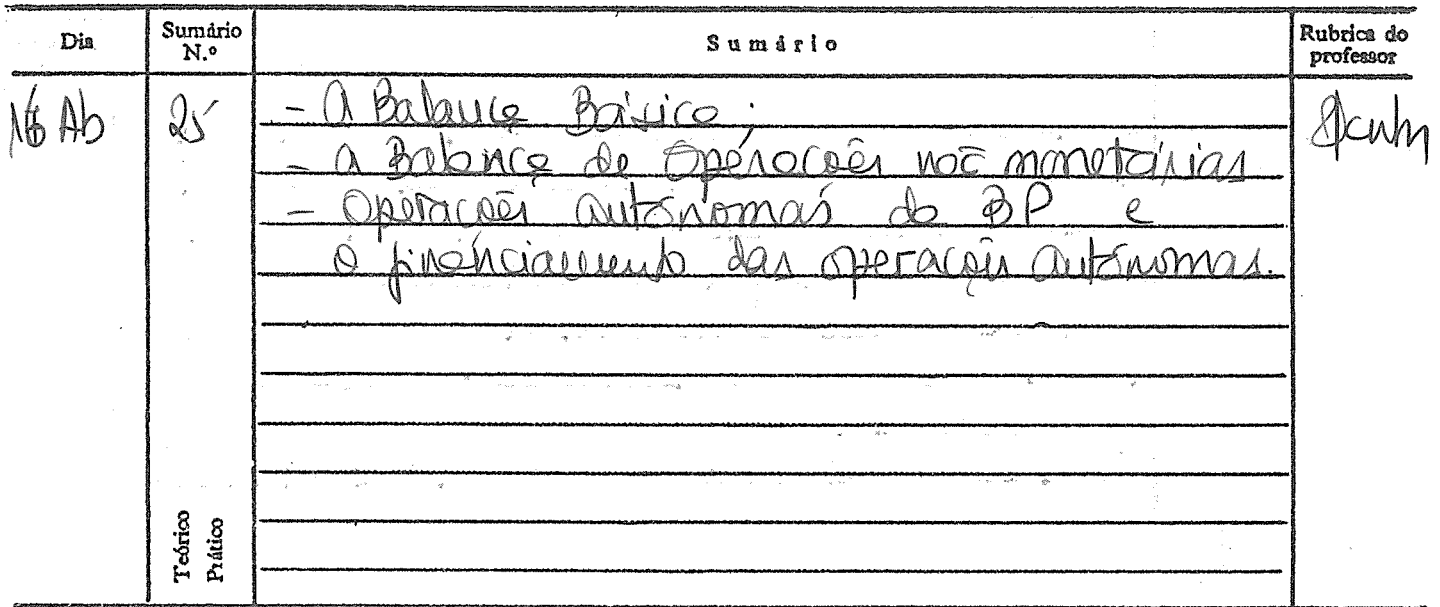 Dia Sumário N.º Sumário Rubrica do professor
16 Ab 25 - A Balança Básica;
- a Balança de Operações não monetárias
- Operações autónomas da BP e
o financiamento das operações autónomas.
Teórico
Prático